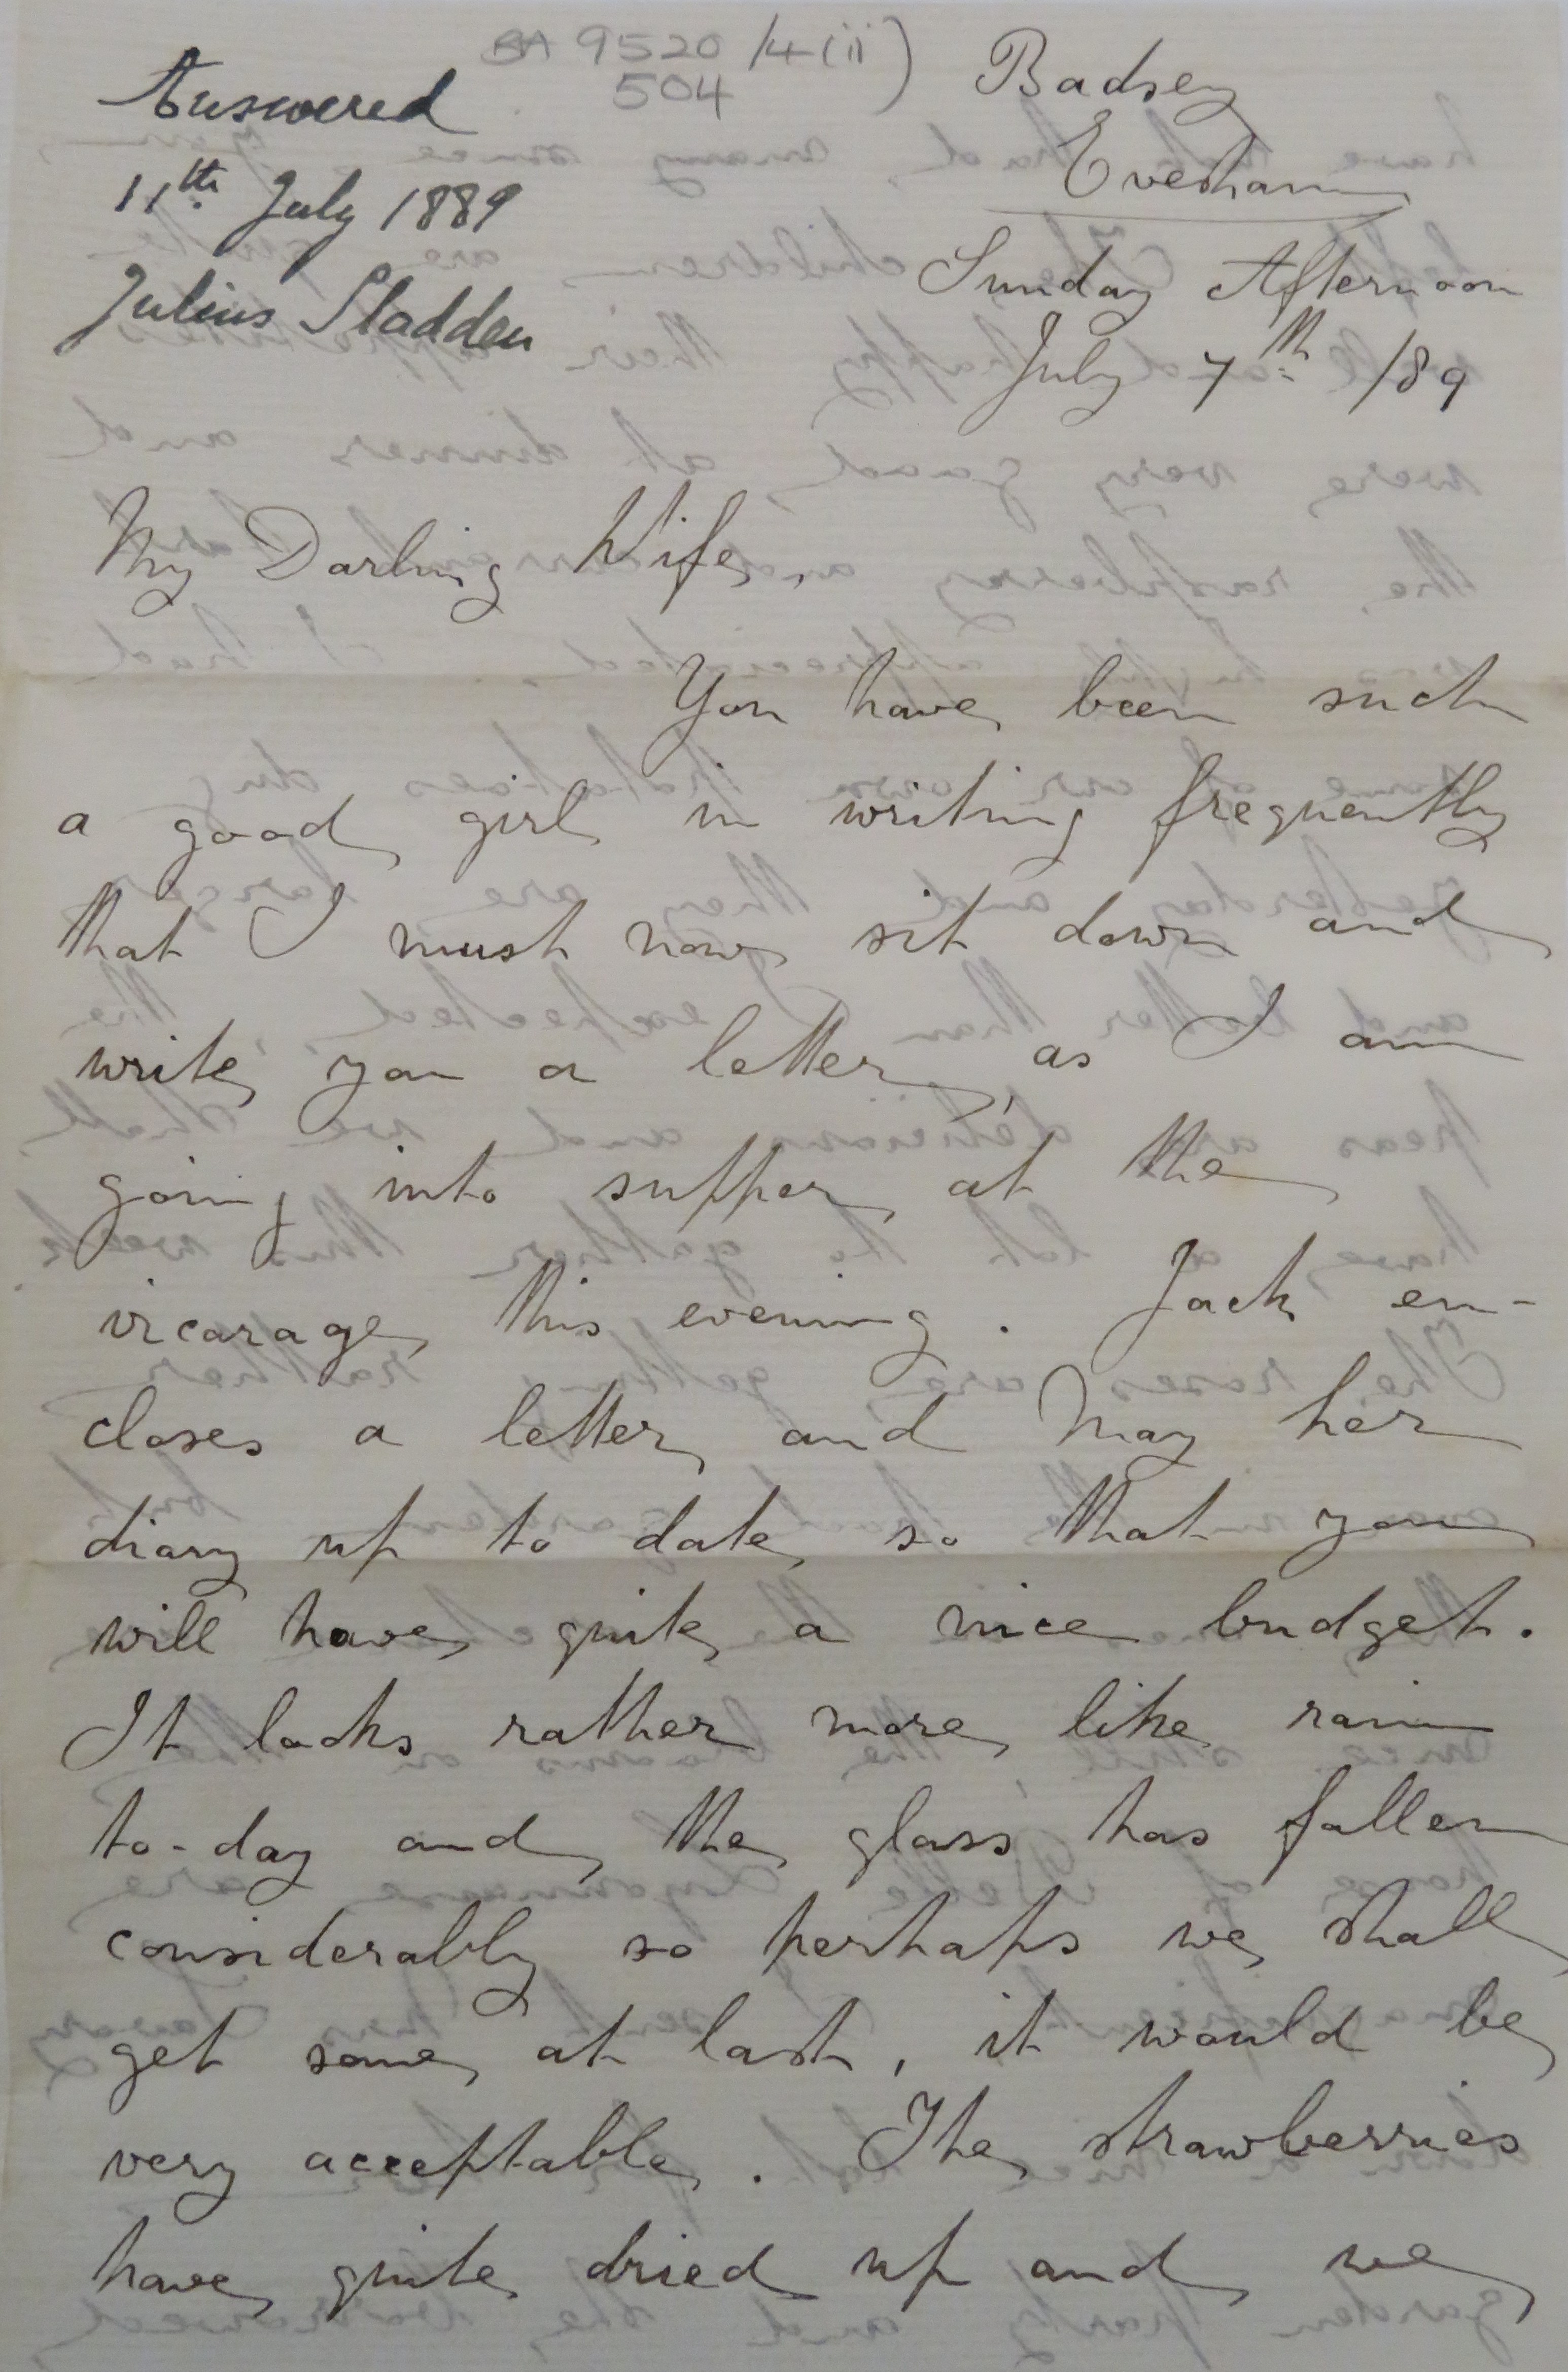 BA 9520/4(ii)
504
Answered
11th July 1889
Julius Sladden
Badsey
Evesham
Sunday Afternoon
July 7th /89
My Darling Wife,
You have been such
a good girl in writing frequently
that I must now sit down and
write you a letter, as I am
going into supper at the
vicarage this evening. Jack en-
closes a letter and May her
diary up to date so that you
will have quite a nice budget.
It looks rather more like rain
to-day and the glass has fallen
considerably so perhaps we shall
get some at last, it would be
very acceptable. The strawberries
have quite dried up and we